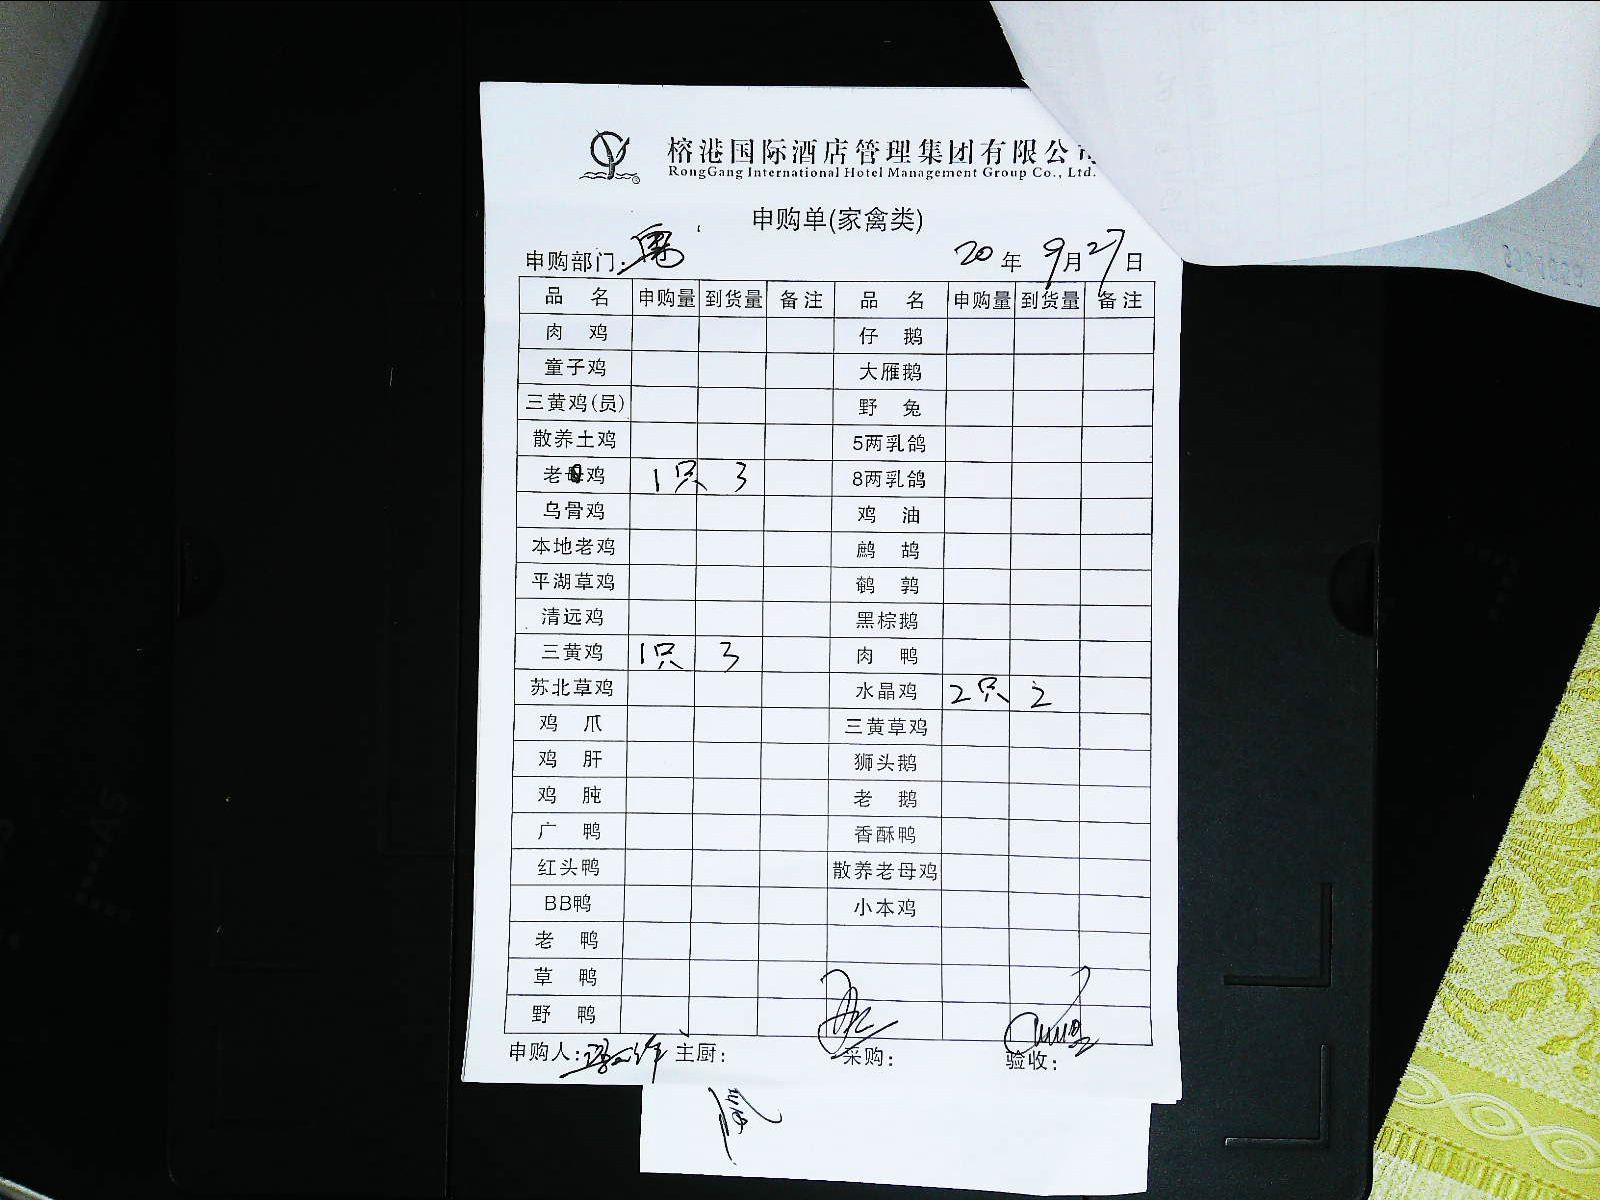 榕港国际酒店管理集团有限公司
RongGang International Hotel Management Group Co., Ltd.
申购单(家禽类)
申购部门: 20年9月27日
品 名 申购量 到货量 备注 品 名 申购量 到货量 备注
肉 鸡 仔 鹅
童子鸡 大雁鹅
三黄鸡(员) 野 兔
散养土鸡 5两乳鸽
老母鸡 1只 3 8两乳鸽
乌骨鸡 鸡 油
本地老鸡 鹧 鸪
平湖草鸡 鹌 鹑
清远鸡 黑棕鹅
三黄鸡 1只 3 肉 鸭
苏北草鸡 水晶鸡 2只 2
鸡 爪 三黄草鸡
鸡 肝 狮头鹅
鸡 肫 老 鹅
广 鸭 香酥鸭
红头鸭 散养老母鸡
BB鸭 小本鸡
老 鸭
草 鸭
野 鸭
申购人: 主厨: 采购: 验收: